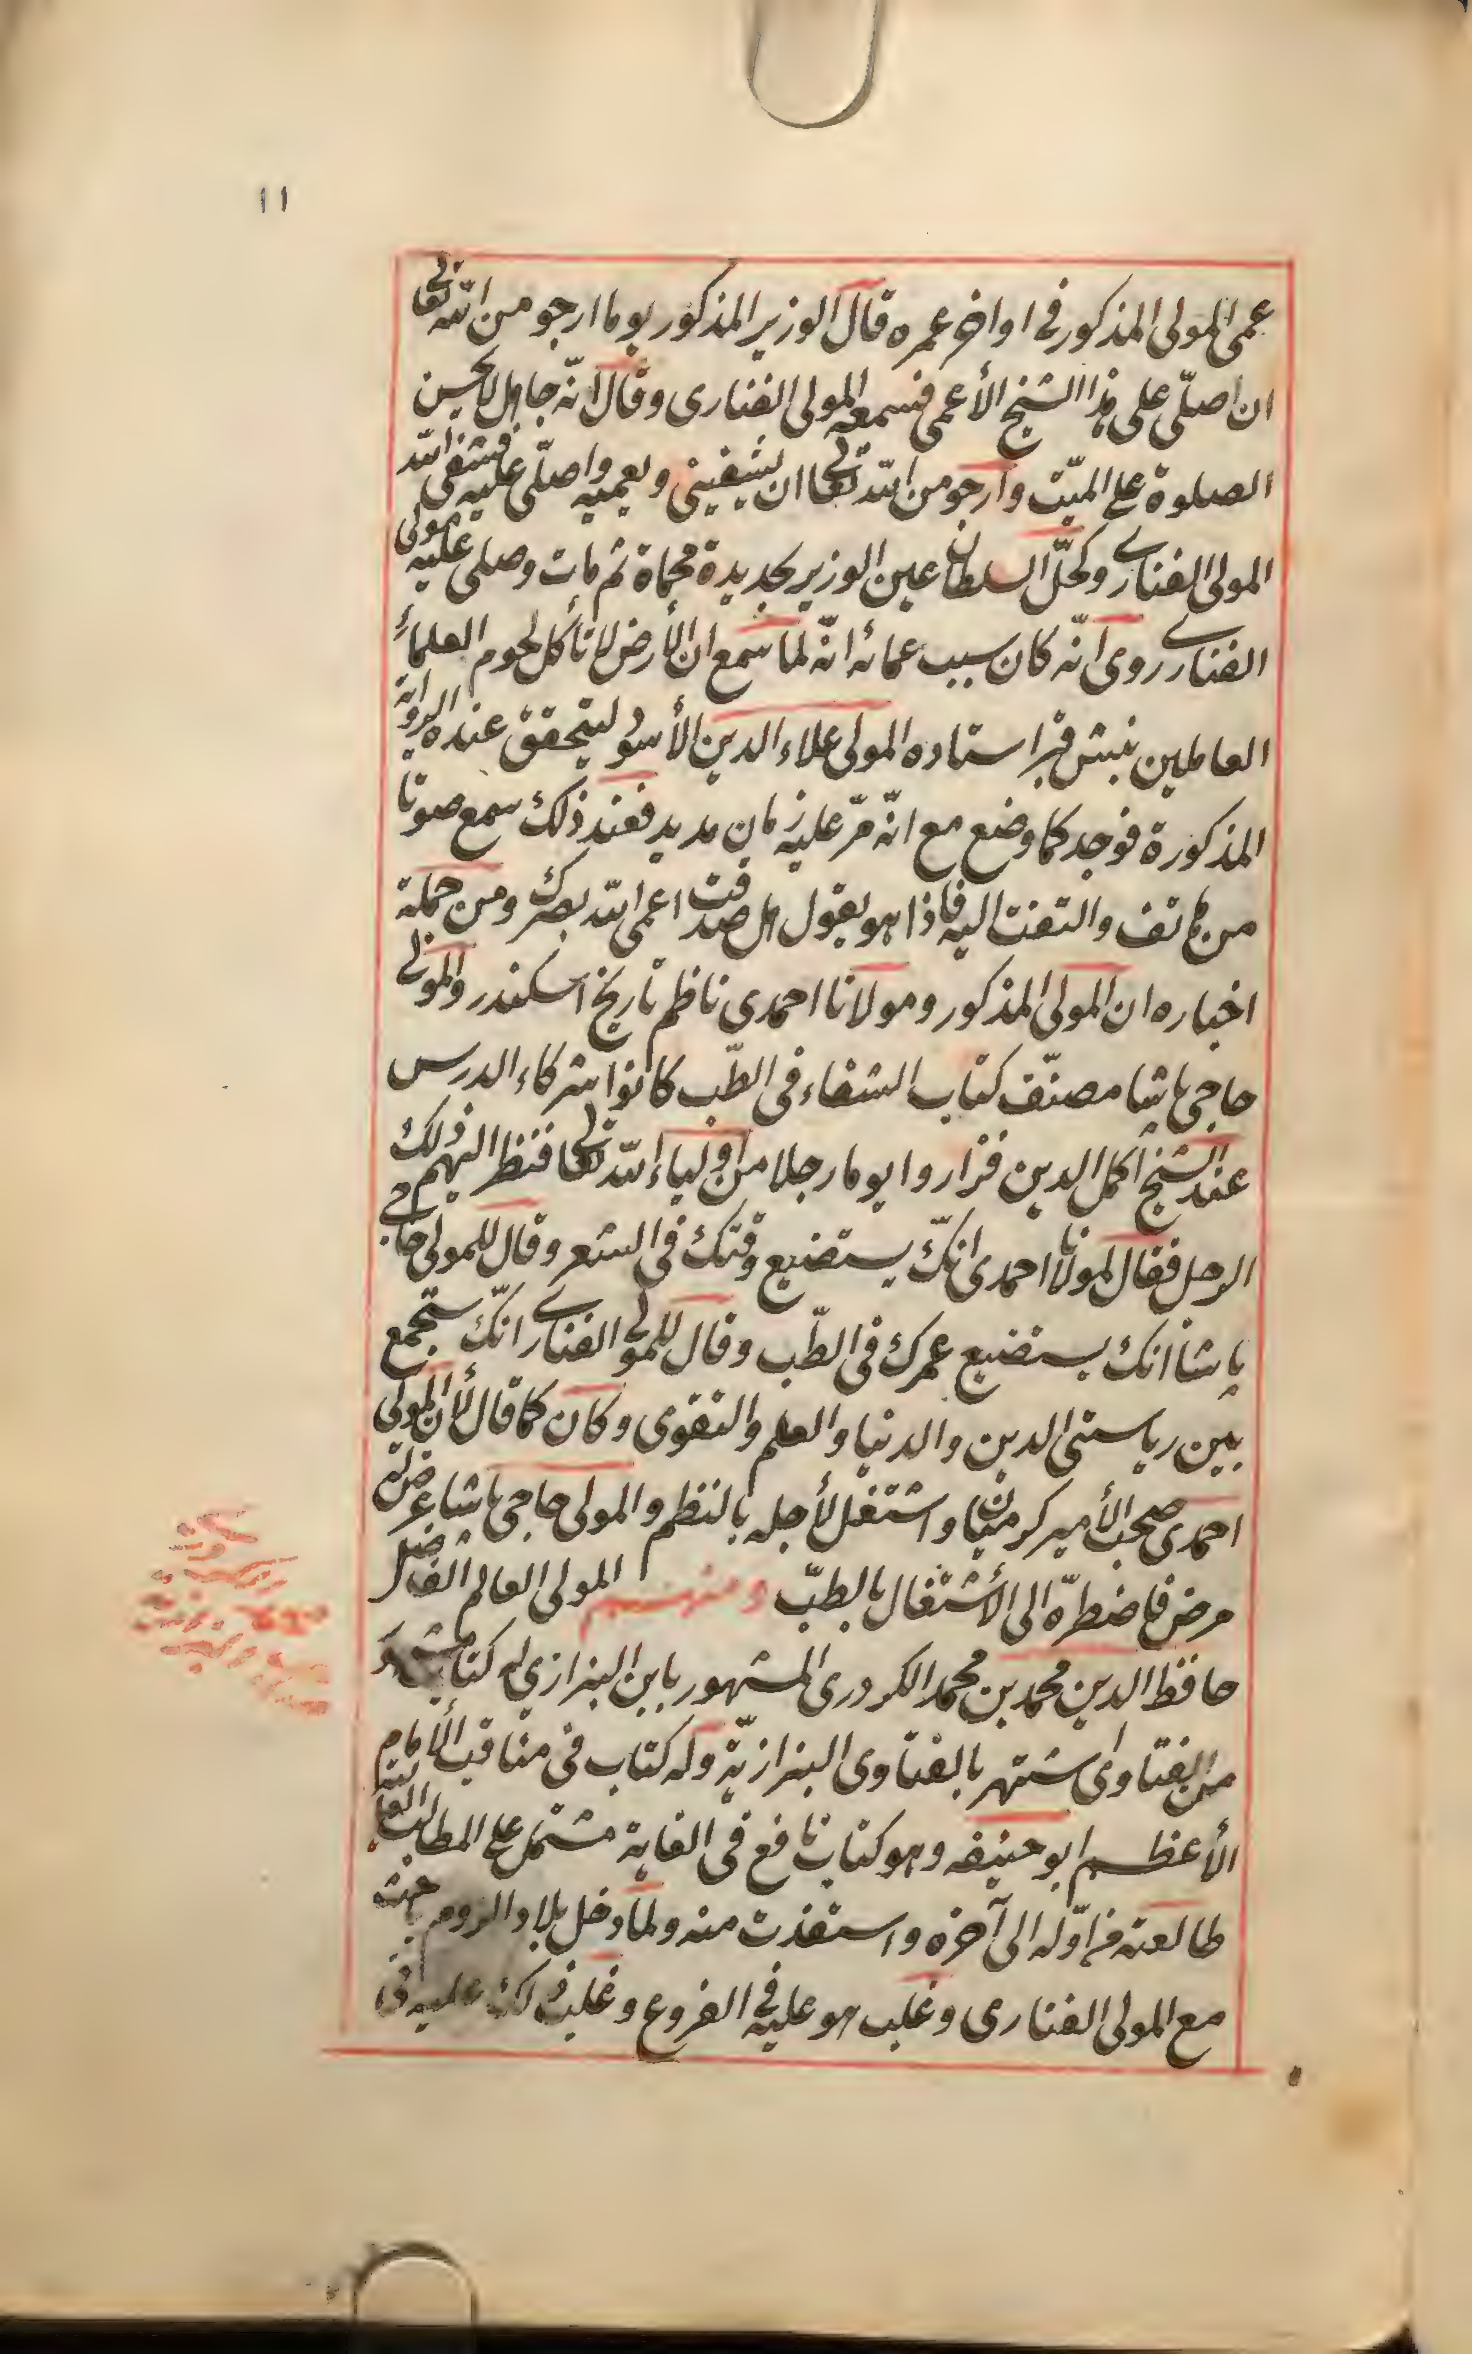 ١١
عمى المولى المذكور في اواخر عمره قال الوزير المذكور يوما ارجو من الله تعالى
ان اصلّي على هذا الشيخ الأعمى فسمعه المولى الفنارى وقال انّه جاهل لا يحسن
الصلوة على الميّت وارجو من الله تعالى ان يشفينى ويعميه واصلّى عليه فشفى الله
المولى الفنارى وكحّل السلطان عين الوزير بحديدة محماة ثم مات وصلى عليه مولى
الفنارى روى انّه كان سبب عمائه انّه لما سمع ان الأرض لا تأكل لحوم العلماء
العاملين نبش قبر استاده المولى علاء الدين الأسود ليتحقق عنده الرواية
المذكورة فوجد كما وضع مع انّه مرّ عليه زمان مديد فعند ذلك سمع صوتا
من هاتف والتفت اليه فاذا هو يقول هل صدقت اعمى الله بصرك ومن جملة
اخباره ان المولى المذكور ومولانا احمدى ناظم تاريخ اسكندر والمولى
حاجى باشا مصنّف كتاب الشفاء فى الطّب كانوا شركاء الدرس
عند الشيخ اكمل الدين فزاروا يوما رجلا من اولياء الله تعالى فنظر اليهم ذلك
الرجل فقال لمولانا احمدى انكّ ستضيع وقتك فى الشعر وقال للمولى حاجى
باشا انك ستضيع عمرك فى الطّب وقال للمولى الفنارى انكّ ستجمع
بين رياستى الدين والدنيا والعلم والتقوى وكان كما قال لأن المولى
احمدى صحب الأمير كرميان واشتغل لأجله بالنظم والمولى حاجى باشا عرض له
مرض فاضطرّه الى الأشتغال بالطبّ ومنهم المولى العالم الفاضل
حافظ الدين محمد بن محمد الكردرى المشهور بابن البزازي له كتاب مشهور
من الفتاوى اشتهر بالفتاوى البزازيّة وله كتاب فى مناقب الأمام
الأعظم ابو حنيفه وهو كتاب نافع فى الغاية مشتمل على المطالب العالية
طالعته من اوّله الى آخره واستفدت منه ولما دخل بلاد الروم باحث
مع المولى الفنارى وغلب هو عليه فى الفروع وغلب ذلك عليه فى